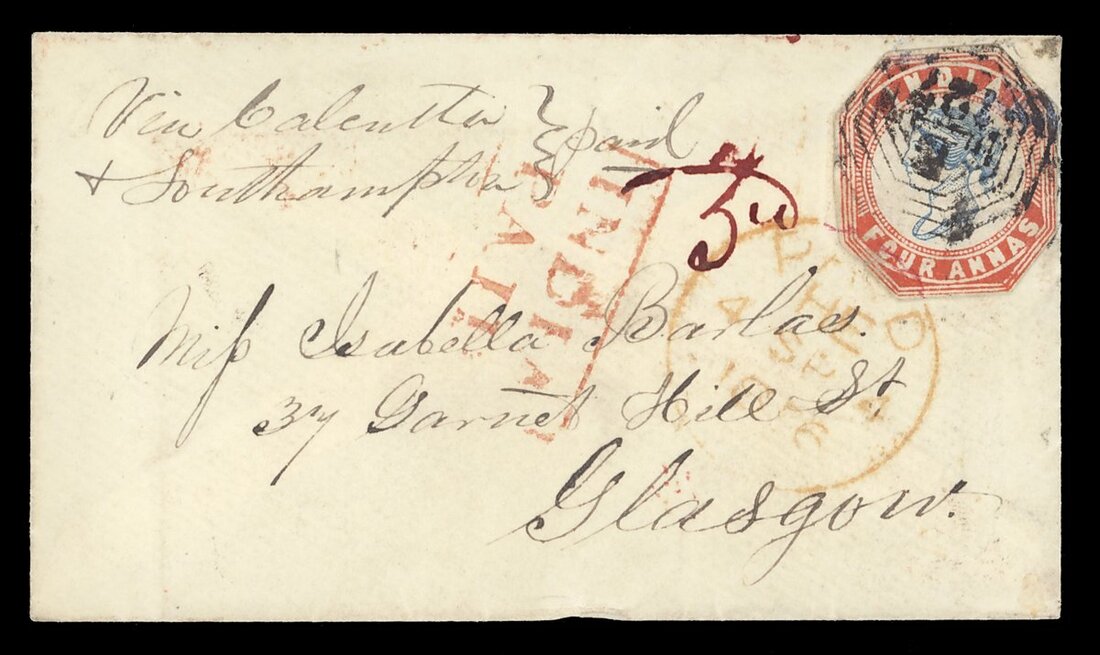 Via Calcutta } paid
+ Southampton
3d
INDIA
FOUR ANNAS
INDIA
PAID
Miſs Isabella Barlas.
37 Garnet Hill St.
Glasgow.